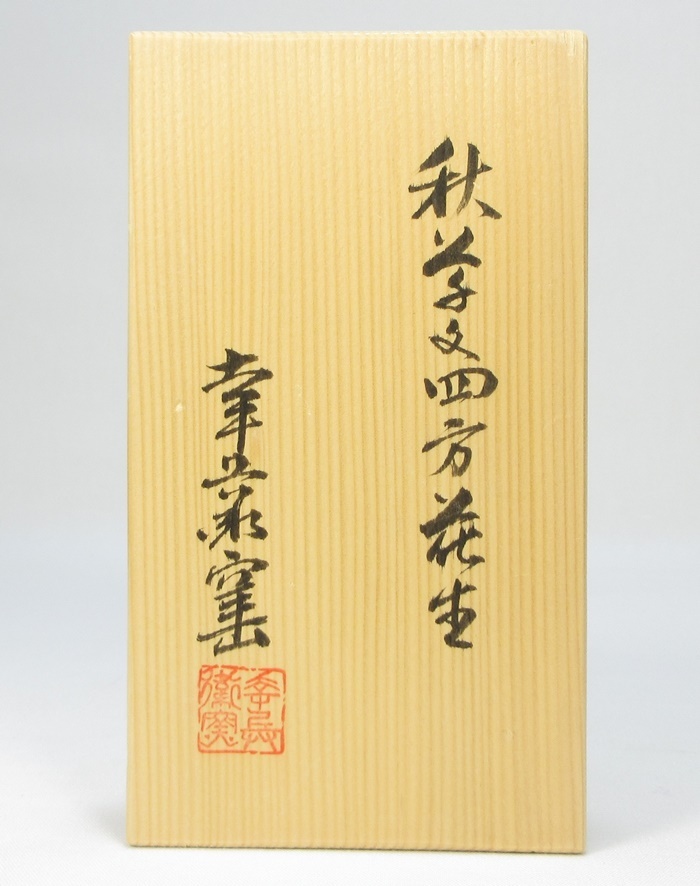 秋草文四方花生
幸兵衛窯
幸兵
衛窯